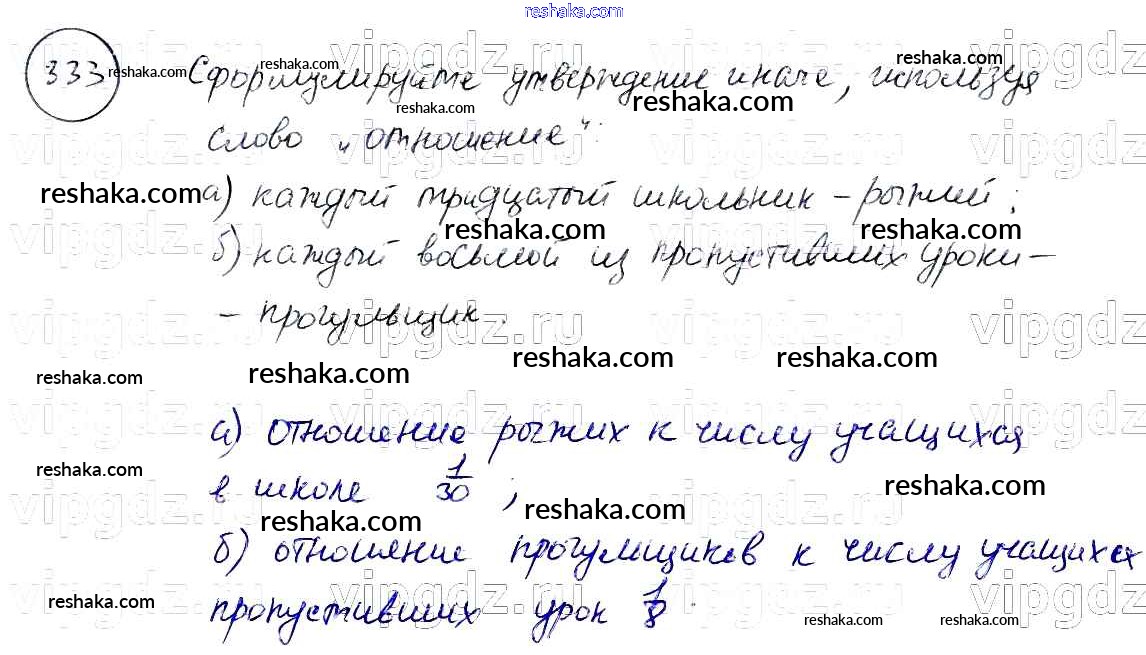 reshaka.com
333 Сформулируйте утверждение иначе, используя
слово „отношение":
а) каждый тридцатый школьник – рыжий;
б) каждый восьмой из пропустивших уроки –
– прогульщик.
а) отношение рыжих к числу учащихся
в школе 1/30 ;
б) отношение прогульщиков к числу учащихся
пропустивших урок 1/8
vipgdz.ru vipgdz.ru vipgdz.ru vipgdz
reshaka.com reshaka.com reshaka.com
reshaka.com reshaka.com
reshaka.com
reshaka.com reshaka.com
vipgdz.ru vipgdz.ru vipgdz.ru vipgdz
reshaka.com reshaka.com reshaka.com reshaka.com
reshaka.com reshaka.com
reshaka.com reshaka.com
reshaka.com reshaka.com reshaka.com